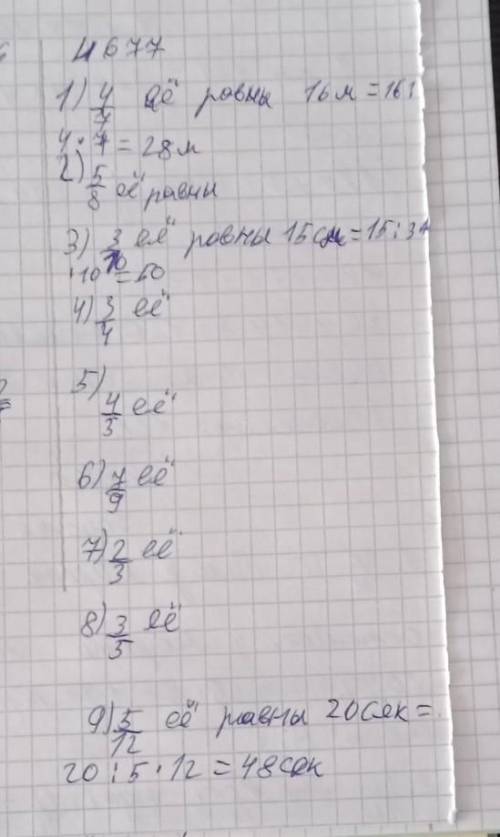 4677
1) 4/7 её равны 16м = 16:
4·7 = 28м
2) 5/8 её равны
3) 3/10 её равны 15см = 15:3
·10 = 50
4) 3/4 её
5) 4/5 её
6) 7/9 её
7) 2/3 её
8) 3/5 её
9) 5/12 её равны 20сек =
20:5·12 = 48сек